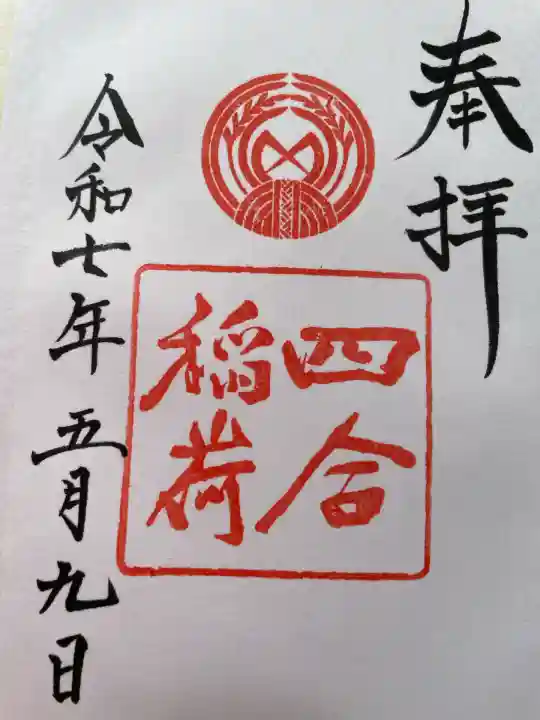 奉拝
四合
稲荷
令和七年 五月九日